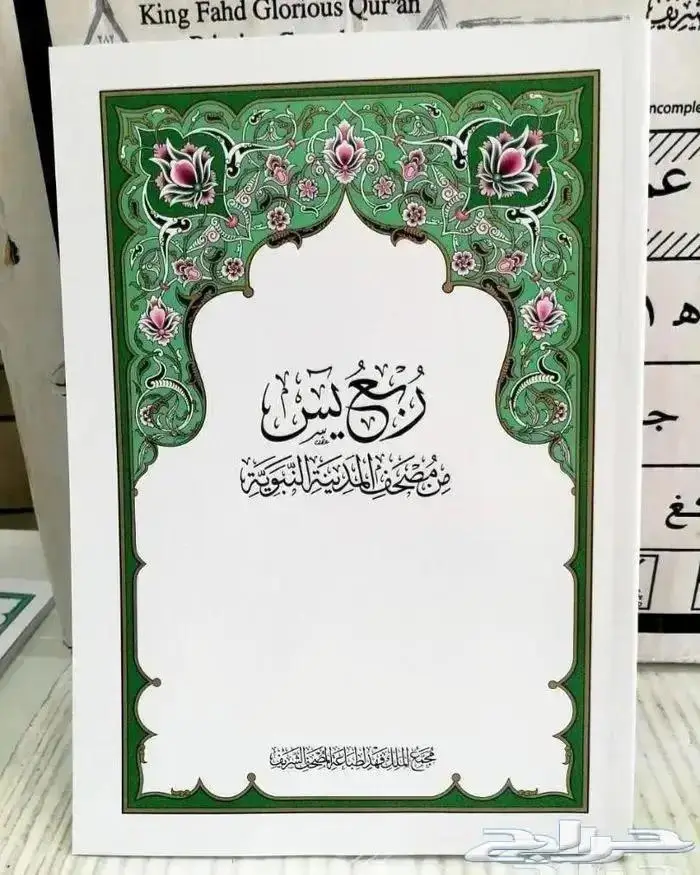 King Fahd Glorious Qur'an
رُبْعُ يسٓ
مِن مُصْحَفِ المَدِينَةِ النَّبَوِيَّةِ
مُجَمَّع المَلِك فَهْد لِطِبَاعَةِ المُصْحَفِ الشَّرِيفِ
حراج